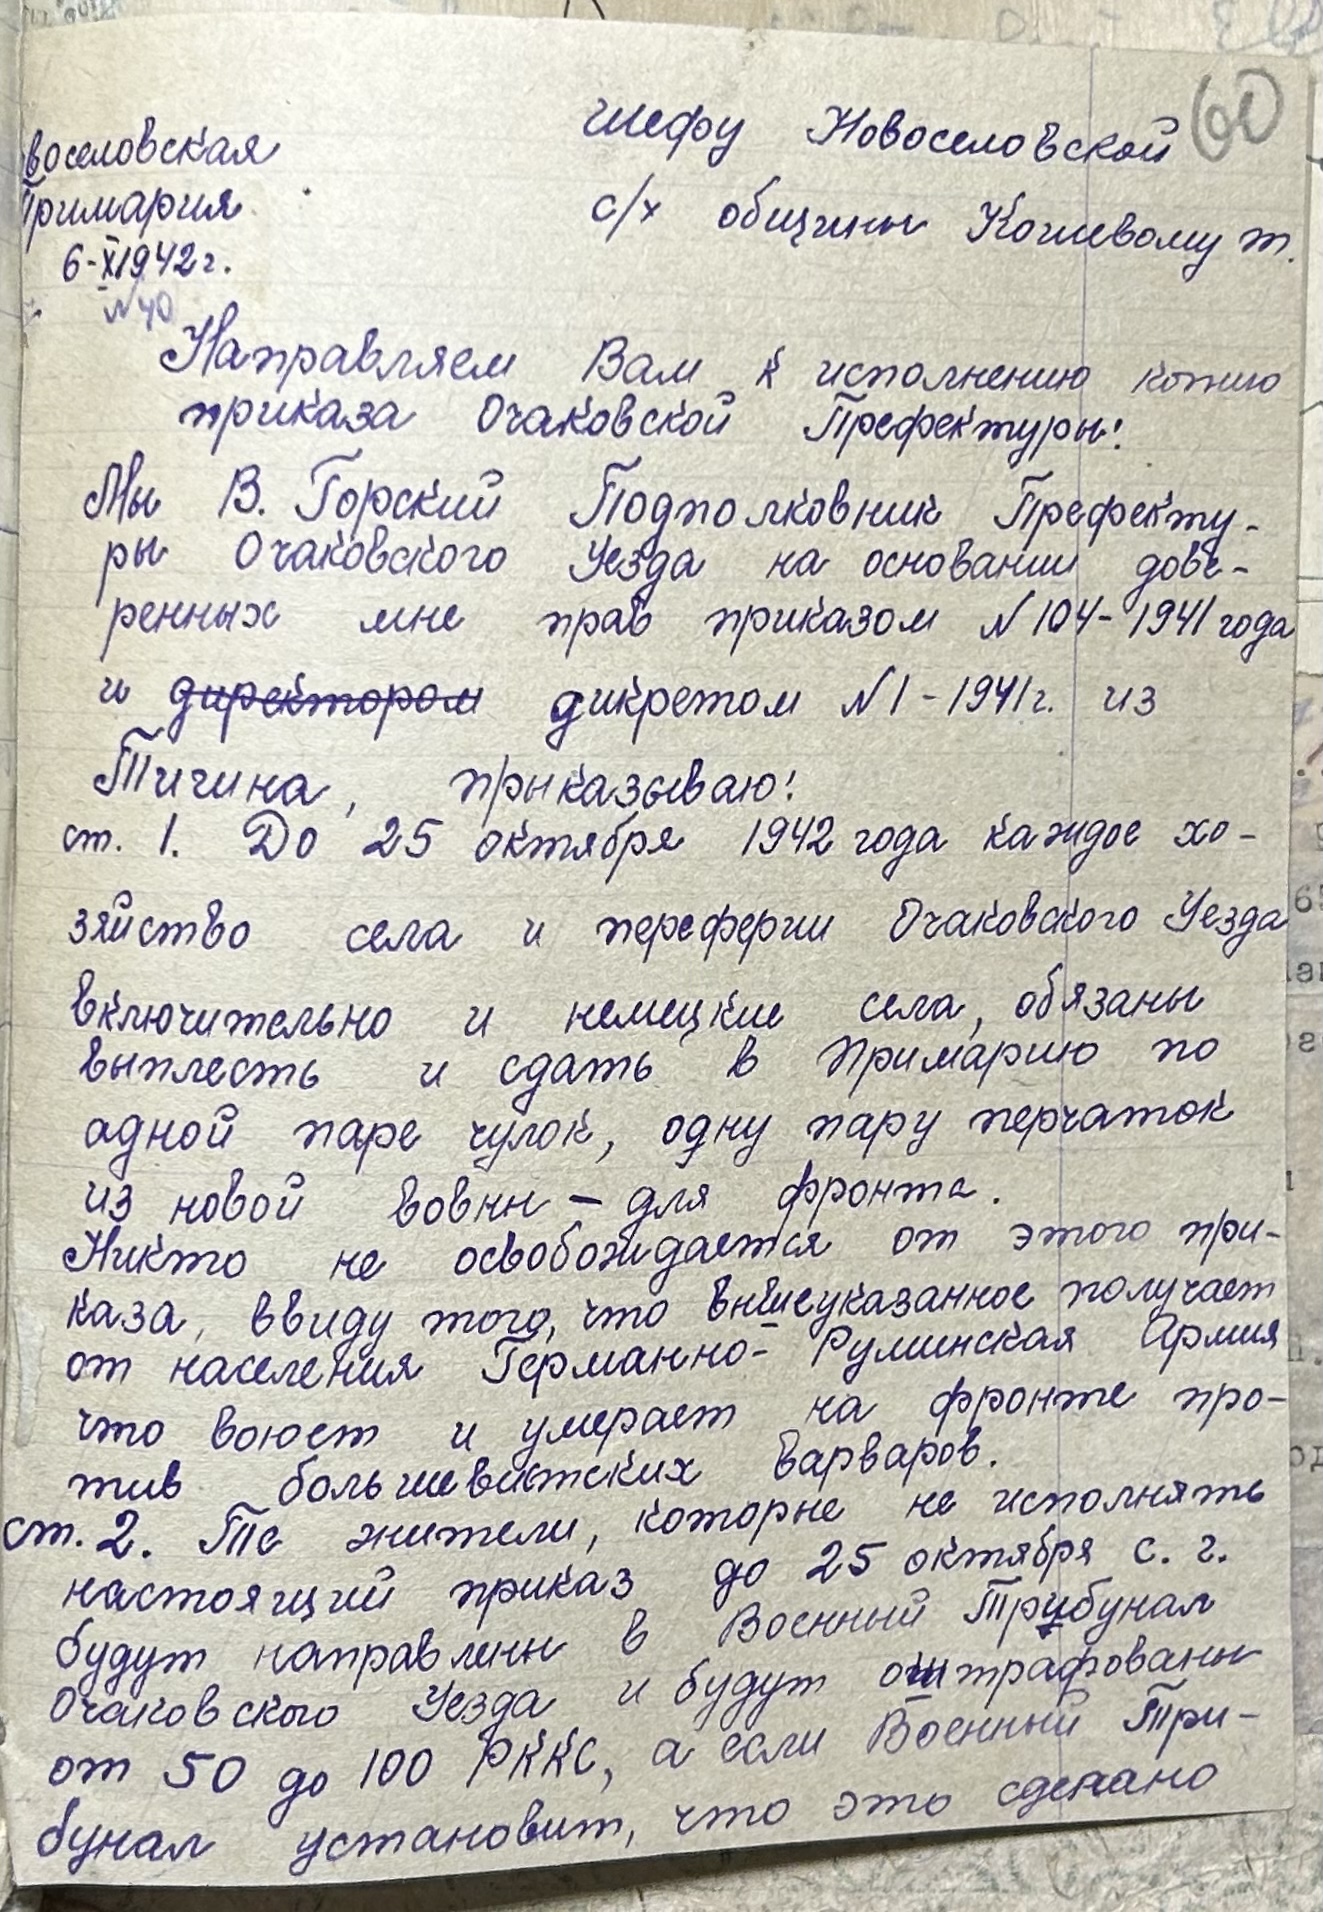 60
шефу Новоселовской
с/х общины Кошевому т.
воселовская
Примария
6-X 1942 г.
N 40
Направляем Вам к исполнению копию
приказа Очаковской Префектуры!
Мы В. Горский Подполковник Префекту-
ры Очаковского Уезда на основании дове-
ренных мне прав приказом N 104-1941 года
и директором дикретом N 1-1941 г. из
Тигина, прыказываю!
ст. 1. До 25 октября 1942 года каждое хо-
зяйство села и переферии Очаковского Уезда
включительно и немецкие села, обязаны
выплесть и сдать в Примарию по
адной паре чулок, одну пару перчаток
из новой вовны - для фронта.
Никто не освобождается от этого при-
каза, ввиду того, что вышеуказанное получает
от населения Германно-Руминская Армия
что воюет и умерает на фронте про-
тив большевитских варваров.
ст. 2. Те жители, которые не исполнять
настоящий приказ до 25 октября с. г.
будут направлены в Военный Трибунал
Очаковского Уезда и будут оштрафованы
от 50 до 100 РККС, а если Военный Три-
бунал установит, что это сделано